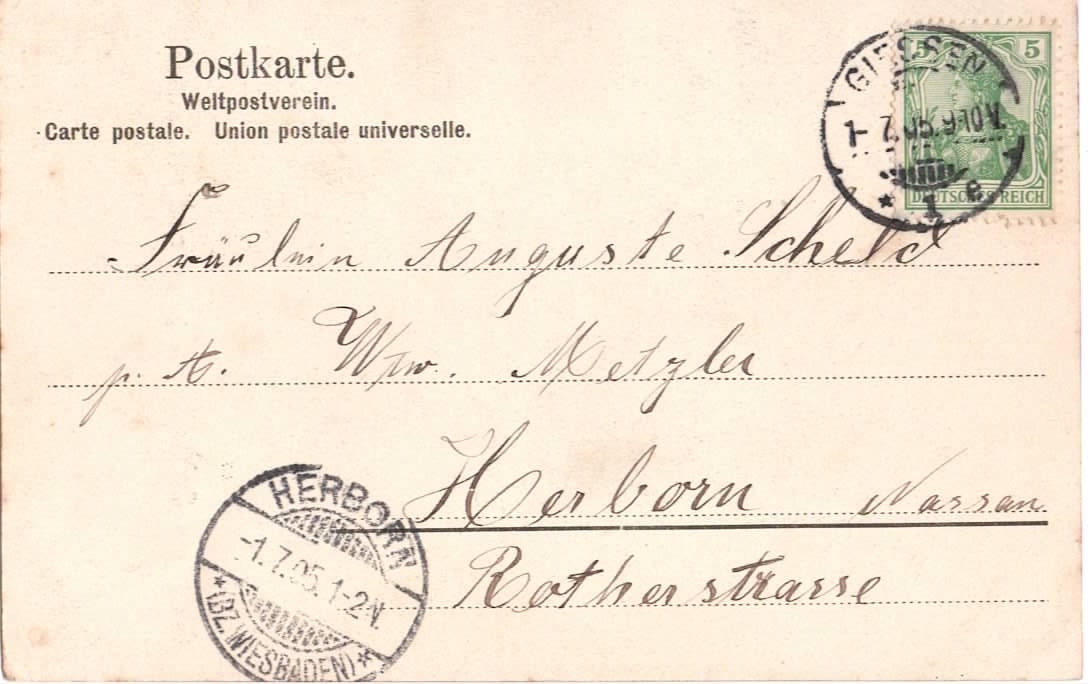 Postkarte.
Weltpostverein.
Carte postale. Union postale universelle.
GIESSEN
5 5
1
e
DEUTSCHES REICH
Fräulein Auguste Scheld
p. A. Wtw. Metzler
Herborn Nassau
Rotherstrasse
HERBORN
-1.7.05.1-2N.
*(BZ. WIESBADEN)*